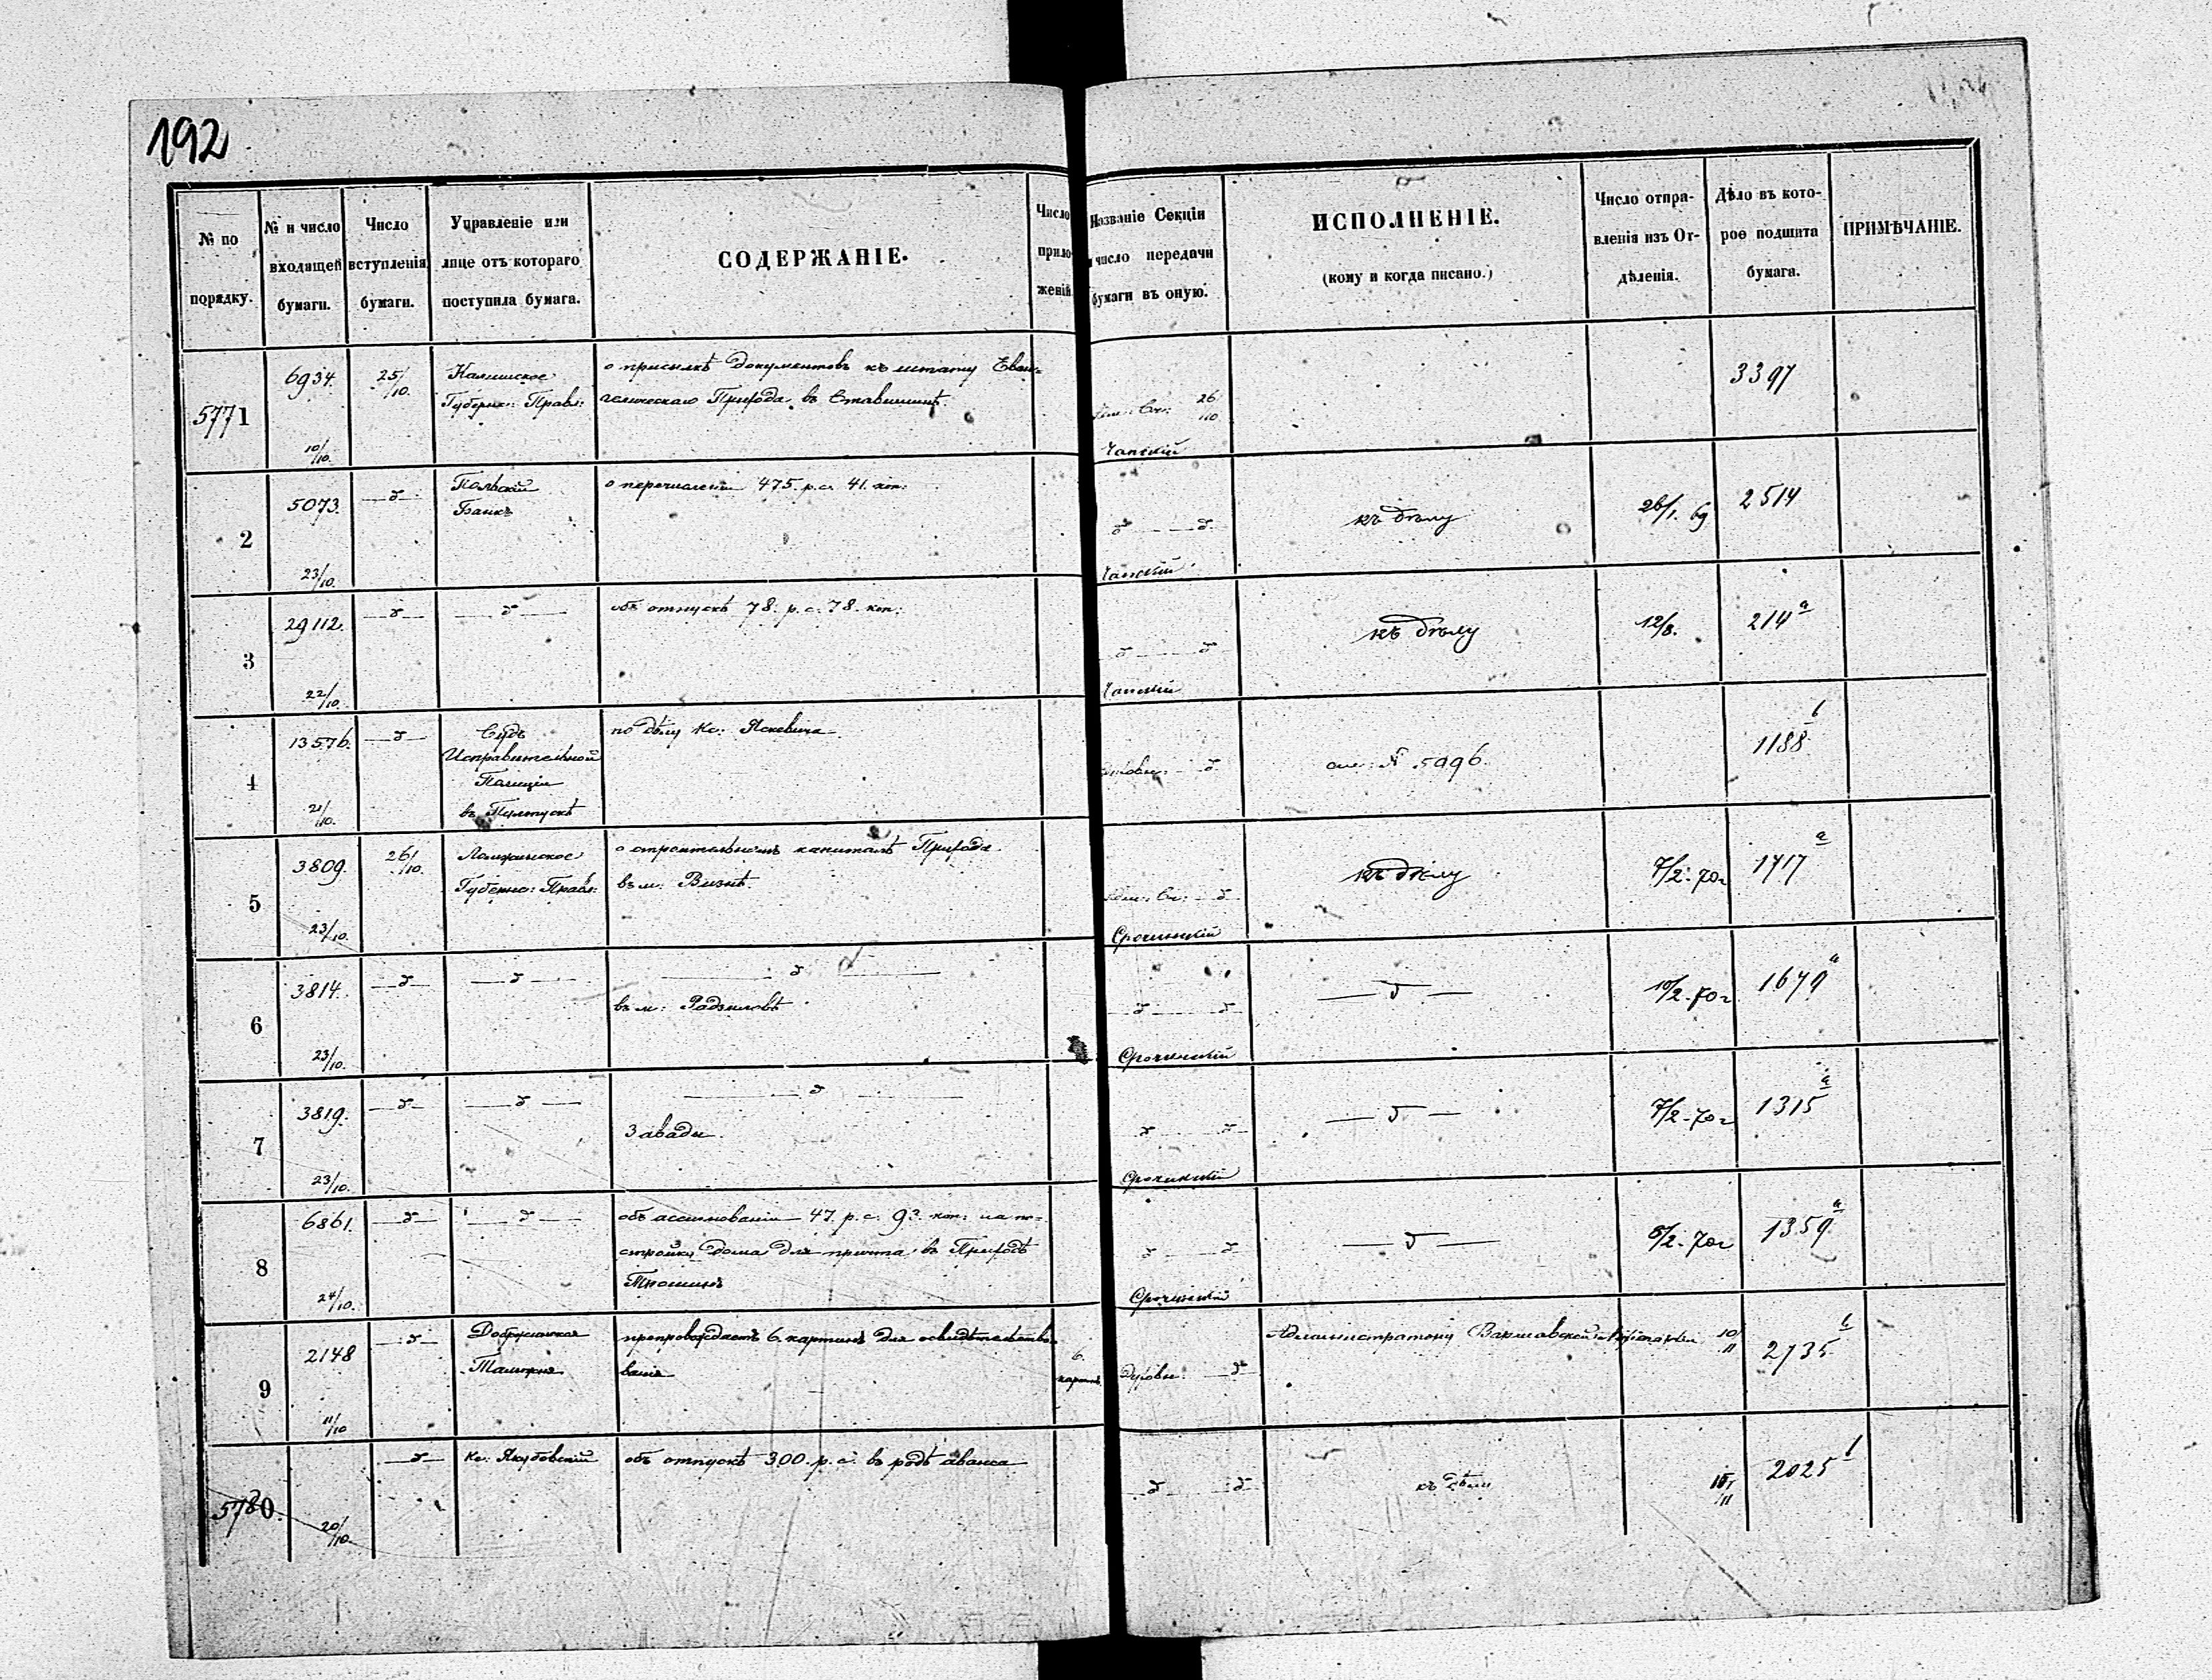 192
№ по порядку.
№ и число входящей бумаги.
Число вступленія бумаги.
Управленіе или лице отъ котораго поступила бумага.
СОДЕРЖАНІЕ.
Число приложеній
Названіе Секціи и число передачи бумаги въ оную.
ИСПОЛНЕНІЕ.
(кому и когда писано.)
Число отправленія изъ Отдѣленія.
Дѣло въ которое подшита бумага.
ПРИМѢЧАНІЕ.
5771 6934. 10/10. 25/10. Калишское Губернс: Правл: о присылкѣ документовъ къ штату Еван-
гелическаго Прихода въ Ставишинѣ. 26/10 Чапскій 3397
2 5073. 23/10. —д— Польскій Банкъ о перечисленіи 475. р.с. 41. коп:
д — д Чапскій къ дѣлу 26/1. 69 2514
3 29112. 22/10. —д— —д— объ отпускѣ 78. р.с. 78. коп:
д — д Чапскій къ дѣлу 12/8. 214 а
4 13576. 21/10. —д— Судъ Исправительной Полиціи въ Пултускѣ по дѣлу Кс: Яскевича.
д см: № 5996. 1188 б
5 3809. 23/10. 26/10. Ломжинское Губернс: Правл: о строительномъ капиталѣ Прихода
въ м: Визнѣ. д Срочинскій къ дѣлу 7/2. 70г 1717 а
6 3814. 23/10. —д— —д— —д—
въ м: Радзиловѣ д — д Срочинскій —д— 10/2. 70г 1679 а
7 3819. 23/10. —д— —д— —д—
Завады. д — д Срочинскій —д— 7/2. 70г 1315 а
8 6861. 24/10. —д— —д— объ ассигнованіи 47. р.с. 9? коп: на по-
стройку дома для причта въ Приходѣ
д — д Срочинскій —д— 6/2. 70г 1359 а
9 2148 11/10 —д— Таможня препровождаетъ 6. картинъ для освидѣтельство-
ванія 6. картинъ. Духовн: —д— Администратору Варшавской Архіепархіи 10/11 2735
5780. 20/10. —д— Кс: Якубовскій объ отпускѣ 300. р.с. въ родѣ аванса
д — д къ дѣлу 2025